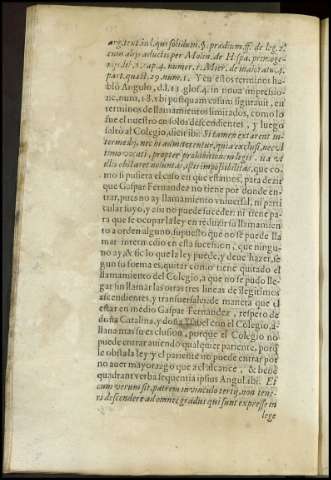 arg. text. in l. qui solidum. §. prædium. ff. de leg. 2.
cum alijs adductis per Molin. de Hisp. primogenijs
lib. 1. cap. 4. numer. 1. Mier. de maioratu. 4.
part. quæst. 29. num. 1. Y en estos terminos ha-
bló Angulo, d. l. 13 glos. 4. in noua impressio-
ne, num. 18. vbi postquam casum figurauit, en
terminos de llamamientos limitados, como lo
fue el nuestro en solos descendientes, y luego
saltó al Colegio, dicit ibi: Si tamen extarent in-
termedij, nec hi admitterentur, quia exclusi, nec vl
timo vocati, propter prohibitionem legis ita vt
illis obstaret voluntas, istis impossibilitas, que co-
mo si pusiera el caso en que estamos, para dezir
que Gaspar Fernandez no tiene por donde en-
trar, pues no ay llamamiento vniuersal, ni parti
cular suyo, y assi no puede suceder: ni tiene pa-
ra que se ocupar la ley en reduzir su llamamien
to a orden alguno, supuesto que no se puede lla
mar intermedio en esta sucession, que ningu-
no ay, & sic lo que la ley puede, y deue hazer, se
gun su forma es, quitar como tiene quitado el
llamamiento del Colegio, a que no se pudo lle-
gar sin llamar las otras tres lineas de legitimos
ascendientes, y transuersales de manera que el
estar en medio Gaspar Fernandez, respeto de
doña Catalina, y doña Ysabel con el Colegio, a-
llano mas su exclusion, porque el Colegio no
puede entrar auiendo qualquier pariente, porq̃
le obsta la ley y el pariente no puede entrar por
no auer mayorazgo que a el alcance, & bene
quadrant verba sequentia ipsius Angul. ibi: Et
cum verum sit, patrem in vinculo tertij, non tene-
ri descendere ad omnes gradus qui sunt expressi in
lege